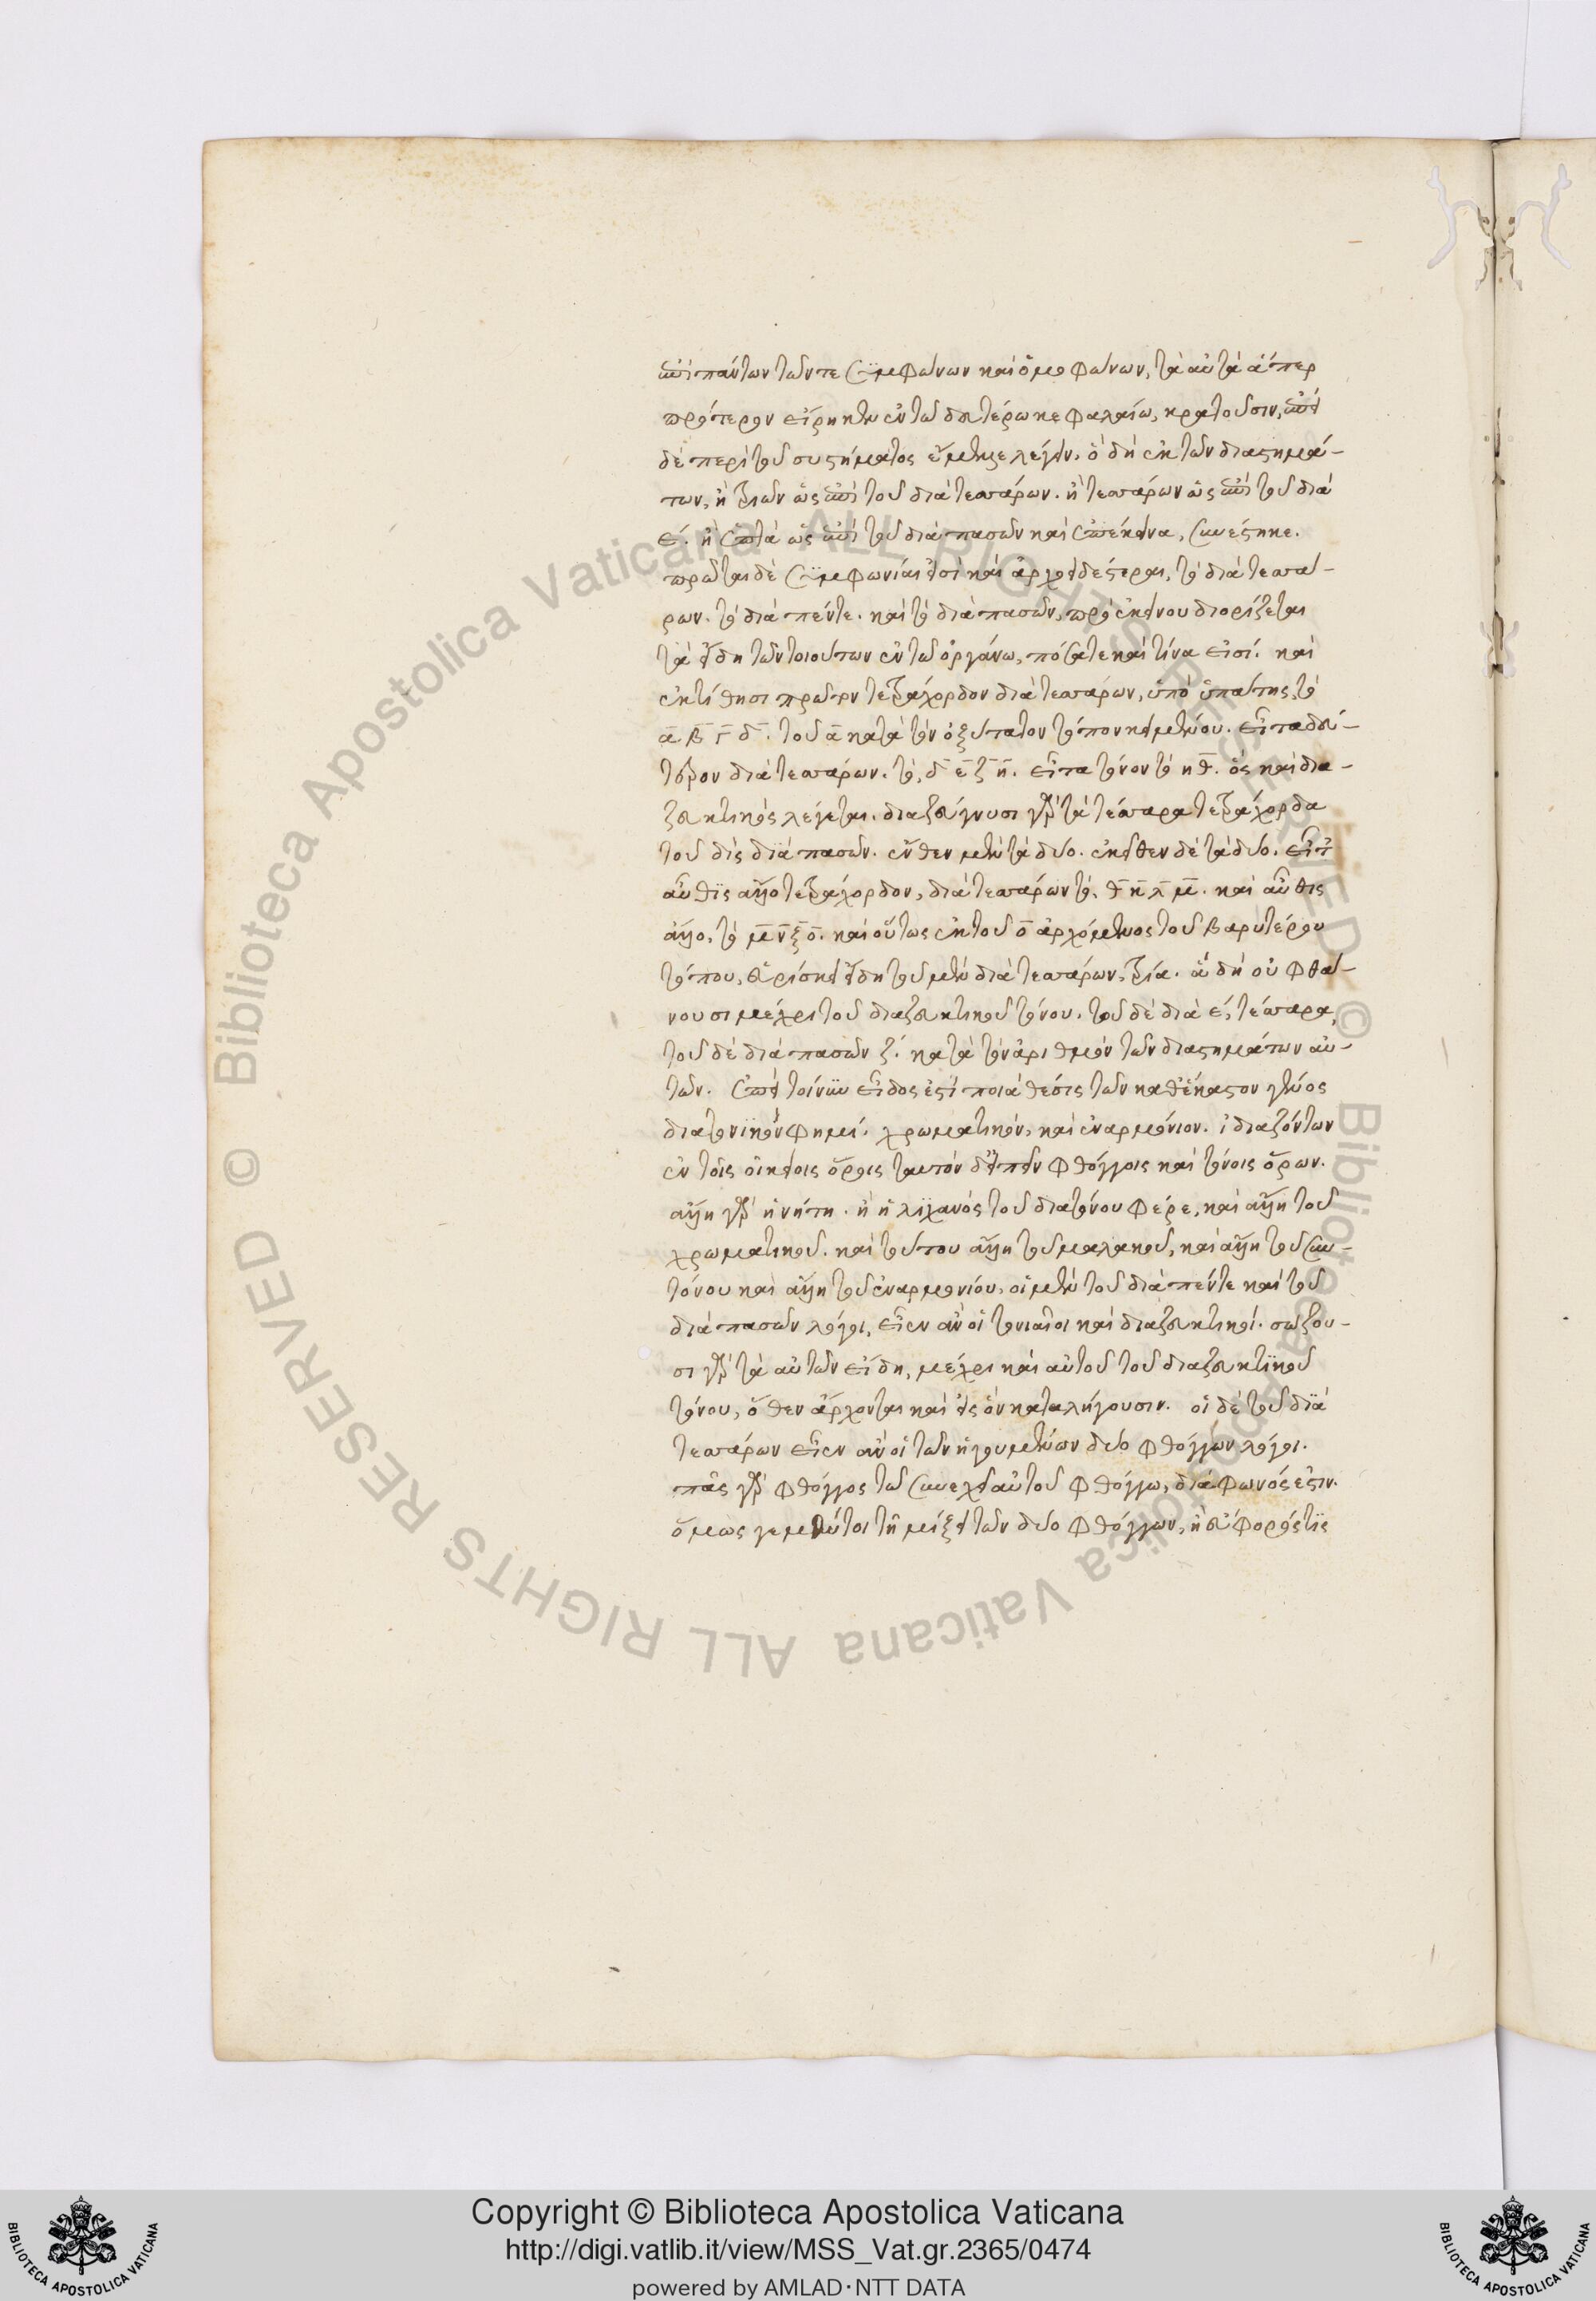 ἐπὶ πάντων τῶν τε συμφώνων καὶ ὁμοφώνων, τὰ αὐτὰ ἅπερ
πρότερον εἴρηκεν ἐν τῶ δευτέρω κεφαλαίω, κρατοῦσιν, ἐπεὶ
δὲ περὶ τοῦ συστήματος ἔμελλε λέγειν, ὃ δὴ ἐκ τῶν διαστημά-
των, ἢ τριῶν ὡς ἐπὶ τοῦ διὰ τεσσάρων. ἢ τεσσάρων ὡς ἐπὶ τοῦ διὰ
ε΄. ἢ ἑπτὰ ὡς ἐπὶ τοῦ διὰ πασῶν καὶ ἐπέκεινα, συνέστηκε.
πρῶται δὲ συμφωνίαι εἰσὶ καὶ ἀρχοειδέστεραι, τὸ διὰ τεσσά-
ρων. τὸ διὰ πέντε. καὶ τὸ διὰ πασῶν, πρὸ ἐκείνου διορίζεται
τὰ εἴδη τῶν τοιούτων ἐν τῶ ὀργάνω, πόσα τε καὶ τίνα εἰσί. καὶ
ἐκτίθησι πρῶτον τετράχορδον διὰ τεσσάρων, ὑπὸ ὑπάτης, τὸ
α β γ δ. τοῦ α κατὰ τὸν ὀξύτατον τόπον κειμένου. εἶτα δεύ-
τερον διὰ τεσσάρων. τὸ, δ ε ζ η. εἶτα τόνον τὸ η θ. ὃς καὶ δια-
ζευκτικὸς λέγεται. διαζεύγνυσι γὰρ τὰ τέσσαρα τετράχορδα
τοῦ δὶς διὰ πασῶν. ἔνθεν μὲν τὰ δύο. ἐκεῖθεν δὲ τὰ δύο. εἶτ
αὖθις ἄλλο τετράχορδον, διὰ τεσσάρων τὸ, θ κ λ μ. καὶ αὖθις
ἄλλο, τὸ μ ν ξ ο. καὶ οὕτως ἐκ τοῦ ο ἀρχόμενος τοῦ βαρυτέρου
τόπου, εὑρίσκει εἴδη τοῦ μὲν διὰ τεσσάρων, τρία. ἃ δὴ οὐ φθά-
νουσι μέχρι τοῦ διαζευκτικοῦ τόνου. τοῦ δὲ διὰ ε΄, τέσσαρα,
τοῦ δὲ διὰ πασῶν ζ΄. κατὰ τὸν ἀριθμὸν τῶν διαστημάτων αὐ-
τῶν. ἐπεὶ τοίνυν εἶδος ἐστὶ ποιὰ θέσις τῶν καθέκαστον γένος
διατονικὸν φημί. χρωματικὸν, καὶ ἐναρμόνιον. ἰδιαζόντων
ἐν τοῖς οἰκείοις ὅροις ταυτὸν δ' εἰπεῖν φθόγγοις καὶ τόνοις ὅρων.
ἄλλη γὰρ ἡ νήτη. ἢ ἡ λιχανὸς τοῦ διατόνου φέρε, καὶ ἄλλη τοῦ
χρωματικοῦ. καὶ τούτου ἄλλη τοῦ μαλακοῦ, καὶ ἄλλη τοῦ συν-
τόνου καὶ ἄλλη τοῦ ἐναρμονίου, οἱ μὲν τοῦ διὰ πέντε καὶ τοῦ
διὰ πασῶν λόγοι, εἶεν ἂν οἱ τονιαῖοι καὶ διαζευκτικοί. σώζου-
σι γὰρ τὰ αὐτῶν εἴδη, μέχρι καὶ αὐτοῦ τοῦ διαζευκτικοῦ
τόνου, ὅθεν ἄρχονται καὶ εἰς ὃν καταλήγουσιν. οἱ δὲ τοῦ διὰ
τεσσάρων εἶεν ἂν οἱ τῶν ἡγουμένων δύο φθόγγων λόγοι.
πᾶς γὰρ φθόγγος τῶ συνεχεῖ αὐτοῦ φθόγγω, διάφωνός ἐστιν.
ὅμως γε μέντοι τῇ μίξει τῶν δύο φθόγγων, ἢ εὔφορός τις
Copyright © Biblioteca Apostolica Vaticana
http://digi.vatlib.it/view/MSS_Vat.gr.2365/0474
powered by AMLAD·NTT DATA